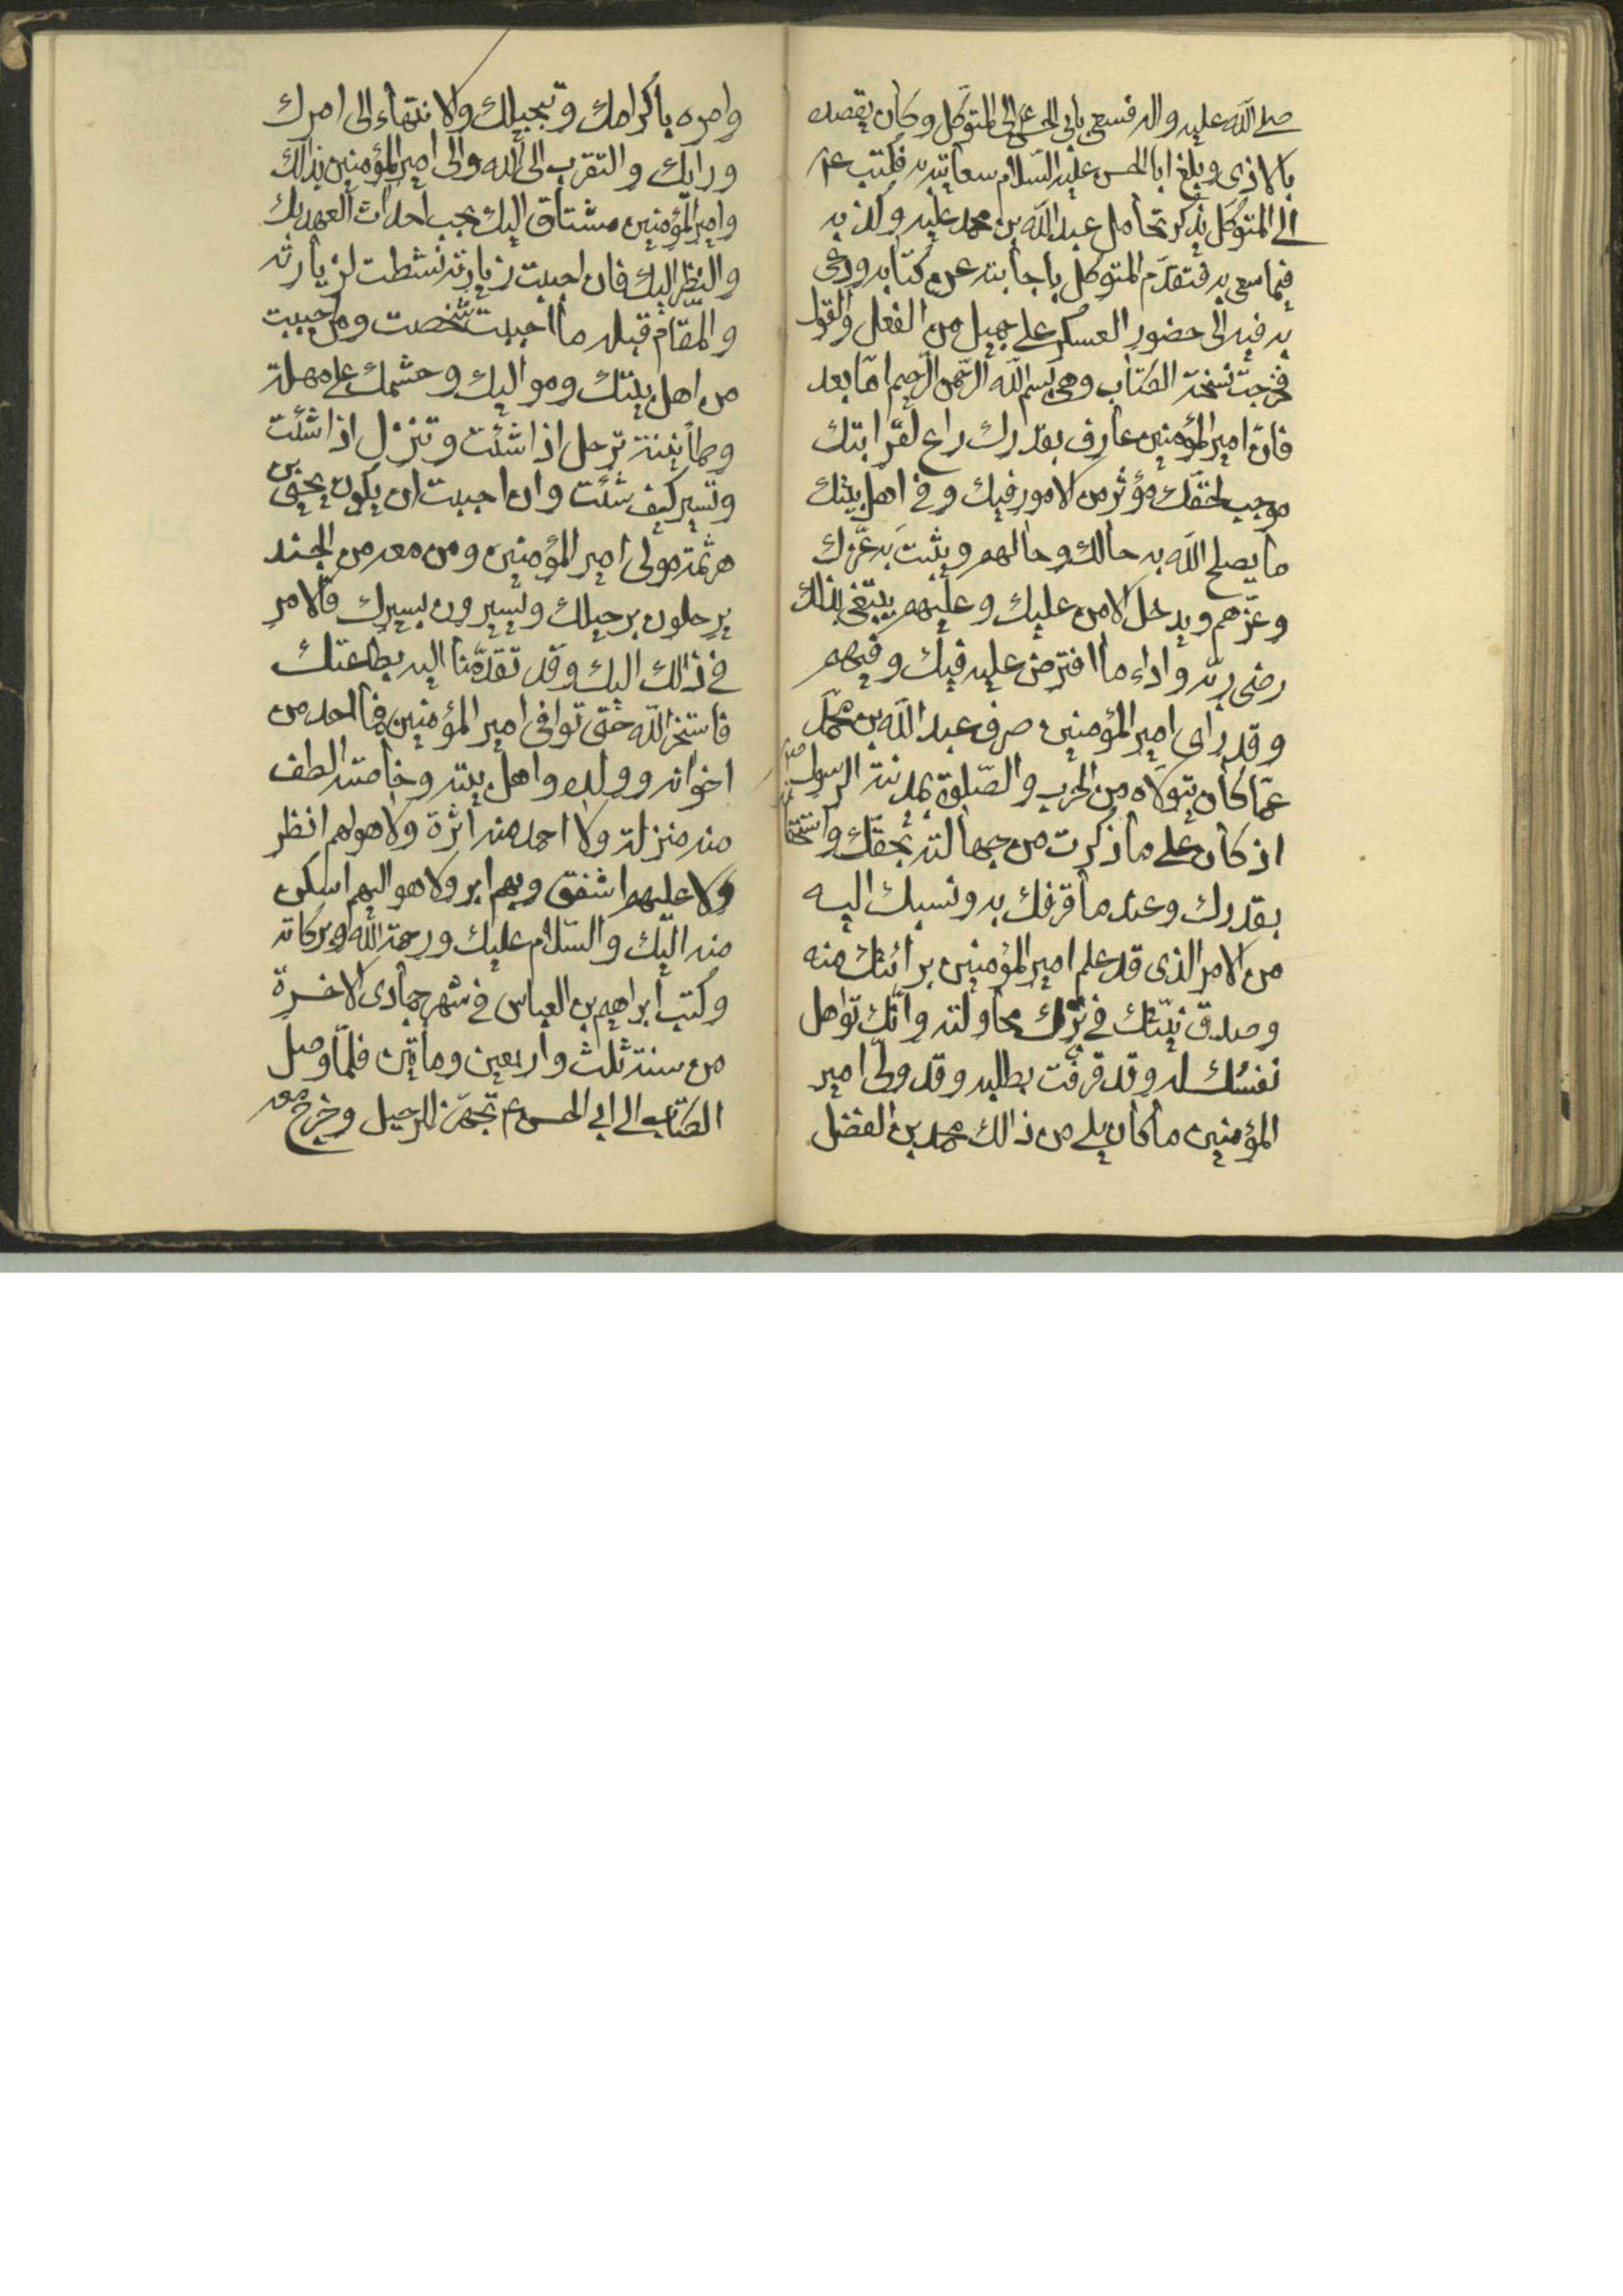 صلى الله عليه واله فسعى بابي الحسن ع الى المتوكل وكان يقصده
بالاذى وبلغ ابا الحسن عليه السلام سعايته به فكتب ع
الى المتوكل يذكر تحامل عبد الله بن محمد عليه وكذبه
فيما سعى به فتقدم المتوكل باجابته عن كتابه ودعى
به فيه الى حضور العسكر على جميل من الفعل والقول
فخرجت نسخة الكتاب وهي بسم الله الرحمن الرحيم اما بعد
فان امير المؤمنين عارف بقدرك راع لقرابتك
موجب لحقك مؤثر من الامور فيك وفي اهل بيتك
ما يصلح الله به حالك وحالهم ويثبت به عزك
وعزهم ويدخل الامن عليك وعليهم يبتغى بذلك
رضى ربه واداء ما افترض عليه فيك وفيهم
وقد راى امير المؤمنين صرف عبد الله بن محمد
عما كان يتولاه من الحرب والصلوة بمدينة الرسول
اذ كان على ما ذكرت من جهالته بحقك واستخفافه
بقدرك وعند ما قرفك به ونسبك اليه
من الامر الذى قد علم امير المؤمنين برائتك منه
وصدق نيتك في ترك محاولته وانك تواهل
نفسك له وقد قرفت بطلبه وقد ولى امير
المؤمنين ما كان يلي من ذالك محمد بن الفضل
وامره باكرامك وتبجيلك والانتهاء الى امرك
ورايك والتقرب الى الله والى امير المؤمنين بذالك
وامير المؤمنين مشتاق اليك يحب احداث العهد بك
والنظر اليك فان احببت زيارته نشطت لزيارته
والمقام قبله ما احببت شخصت ومن احببت
من اهل بيتك ومواليك وحشمك على مهلة
وطمانينة ترحل اذا شئت وتنزل اذا شئت
وتسير كيف شئت وان احببت ان يكون يحيى بن
هرثمة مولى امير المؤمنين ومن معه من الجند
يرحلون برحيلك ويسيرون بسيرك فالامر
في ذالك اليك وقد تقدمنا اليه بطاعتك
فاستخر الله حتى توافى امير المؤمنين فما احد من
اخوانه وولده واهل بيته وخاصته الطف
منه منزلة ولا احمد منه اثرة ولا هو لهم انظر
ولا عليهم اشفق وبهم ابر ولا هو اليهم اسكن
منه اليك والسلام عليك ورحمة الله وبركاته
وكتب ابراهيم بن العباس في شهر جمادى الاخرة
من سنة ثلث واربعين ومأتين فلما وصل
الكتاب الى ابي الحسن ع تجهز للرحيل وخرج معه